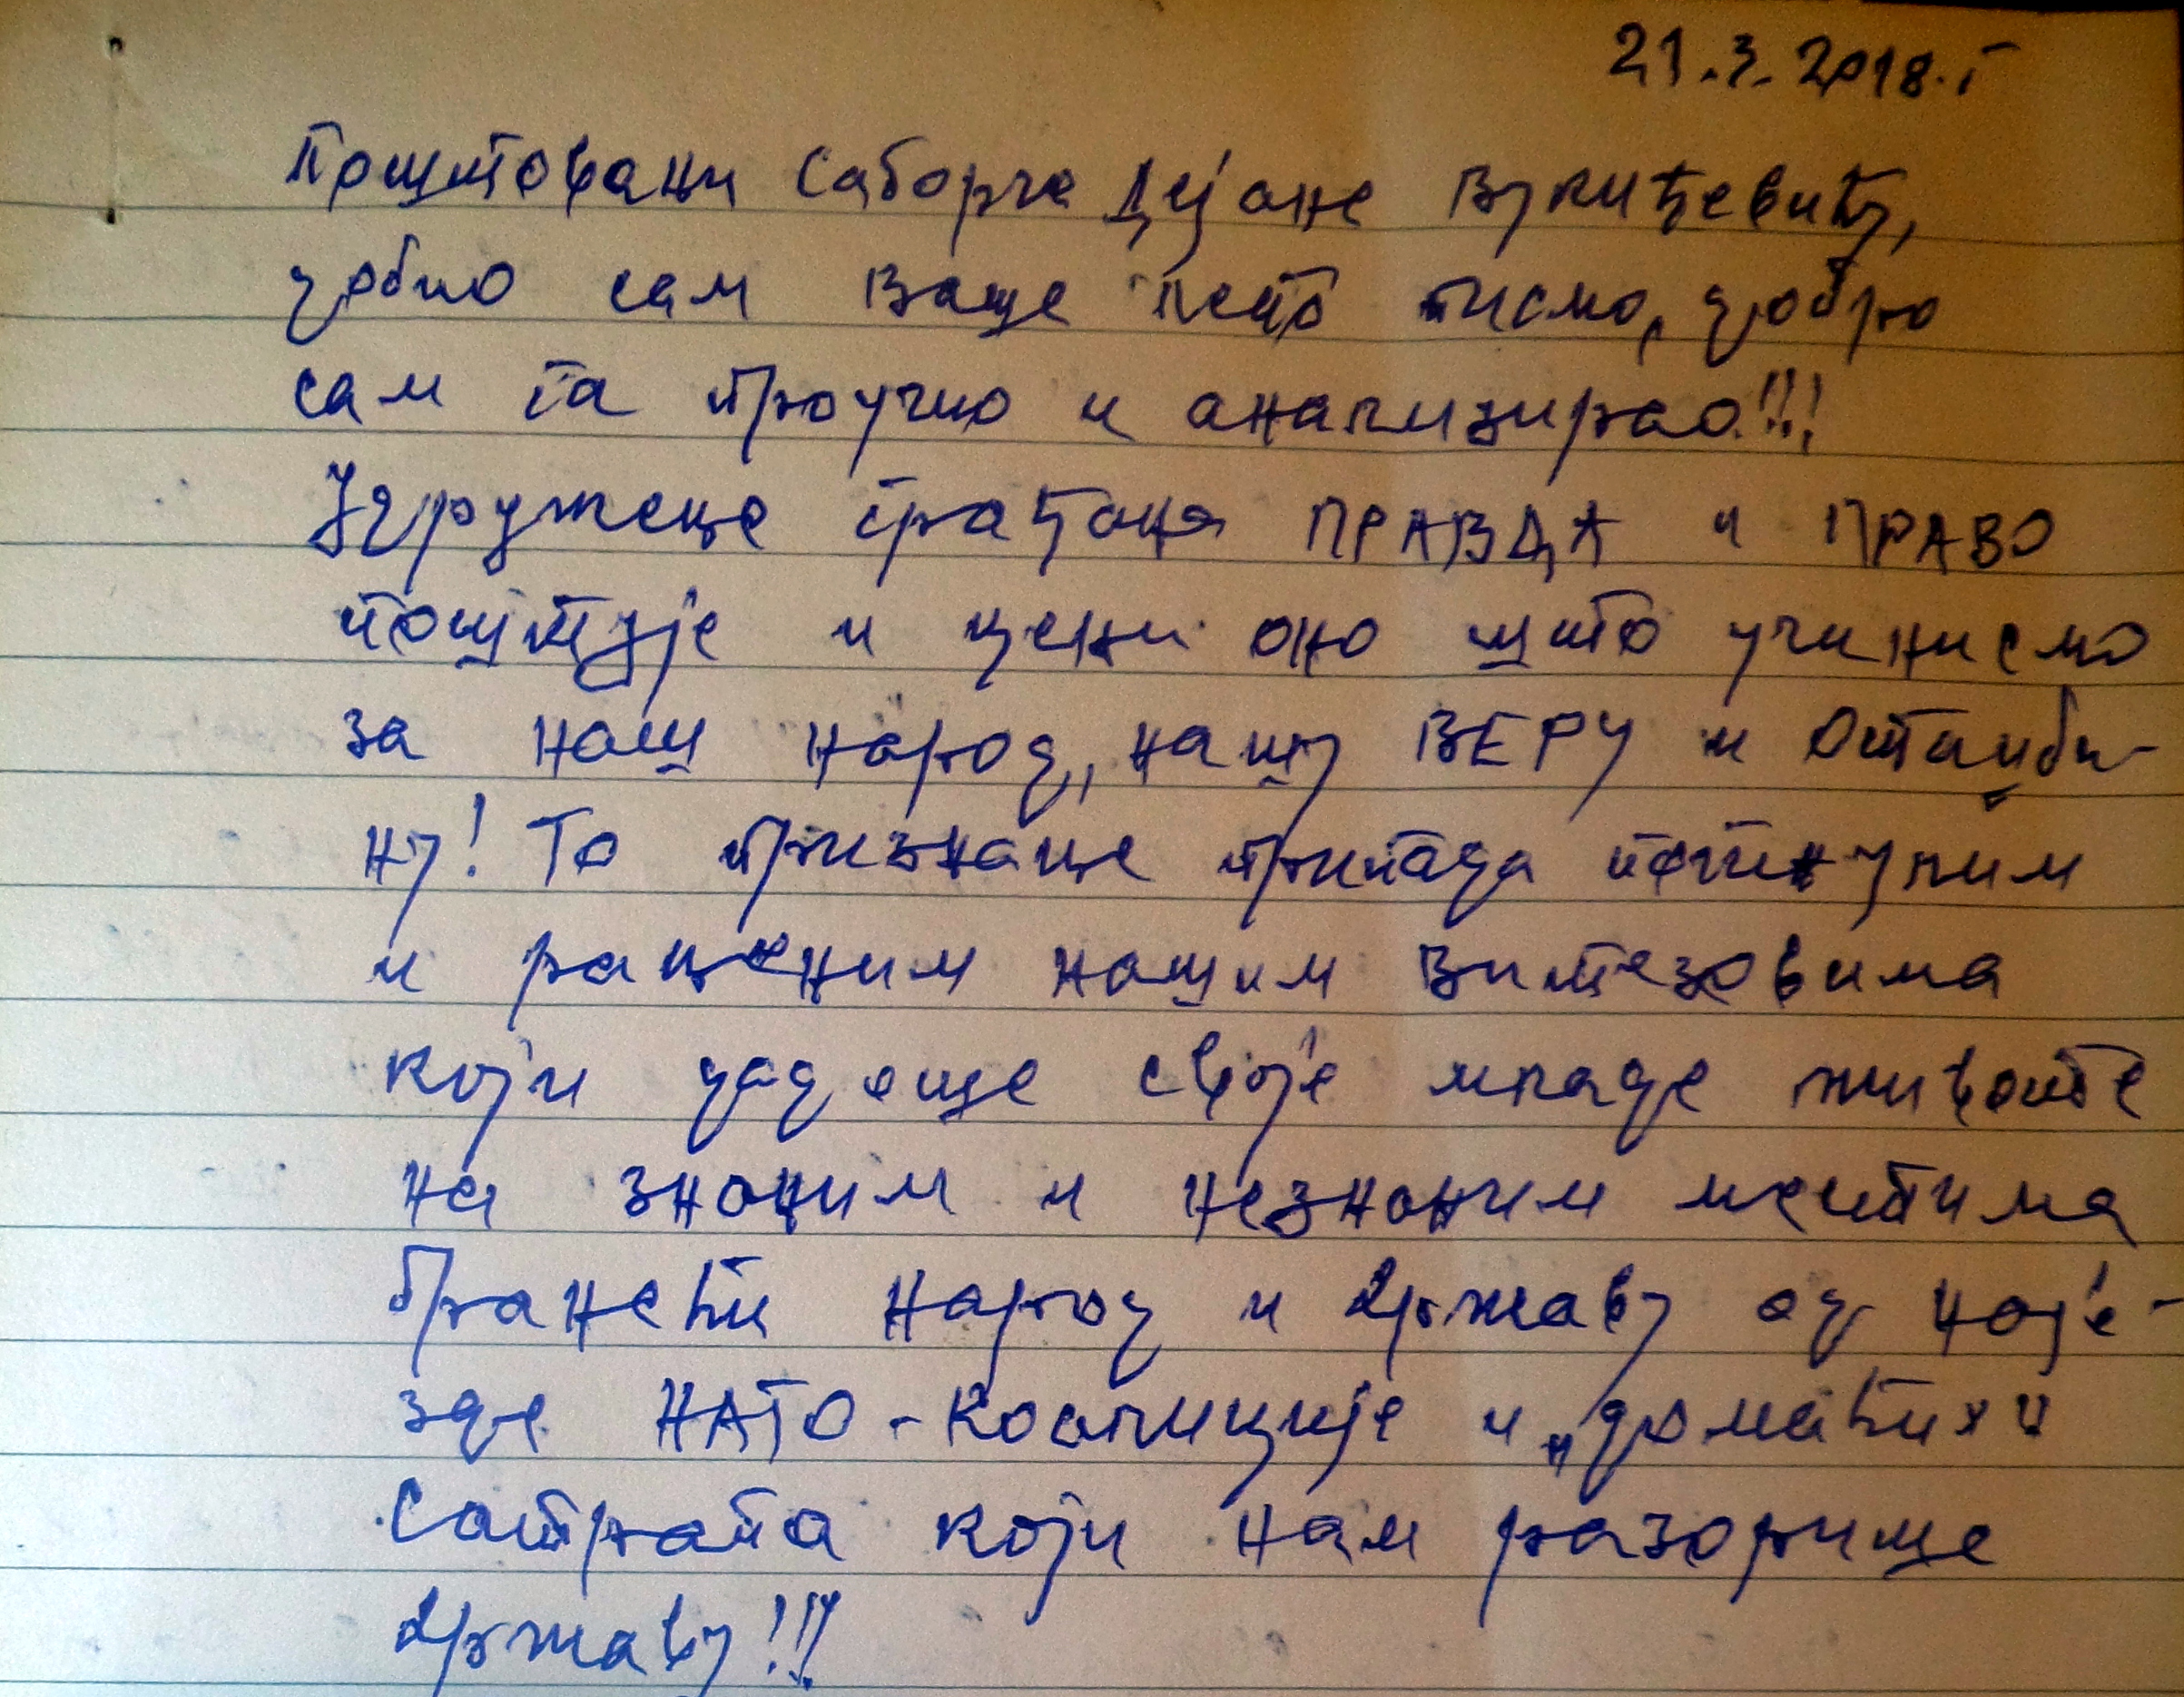 21.3.2018.г
Поштовани Саборче Дејане Вукићевићу,
добио сам Ваше пето писмо, добро
сам га проучио и анализирао!!!
Удружење грађана ПРАВДА и ПРАВО
поштује и цени оно што учинисмо
за наш народ, нашу ВЕРУ и Отаџби-
ну! То признање припада погинулим
и рањеним нашим Витезовима
који дадоше своје младе животе
на знаним и незнаним местима
бранећи народ и државу од наје-
зде НАТО-Коалиције и „домаћих"
Сатрапа који нам разорише
државу!!!